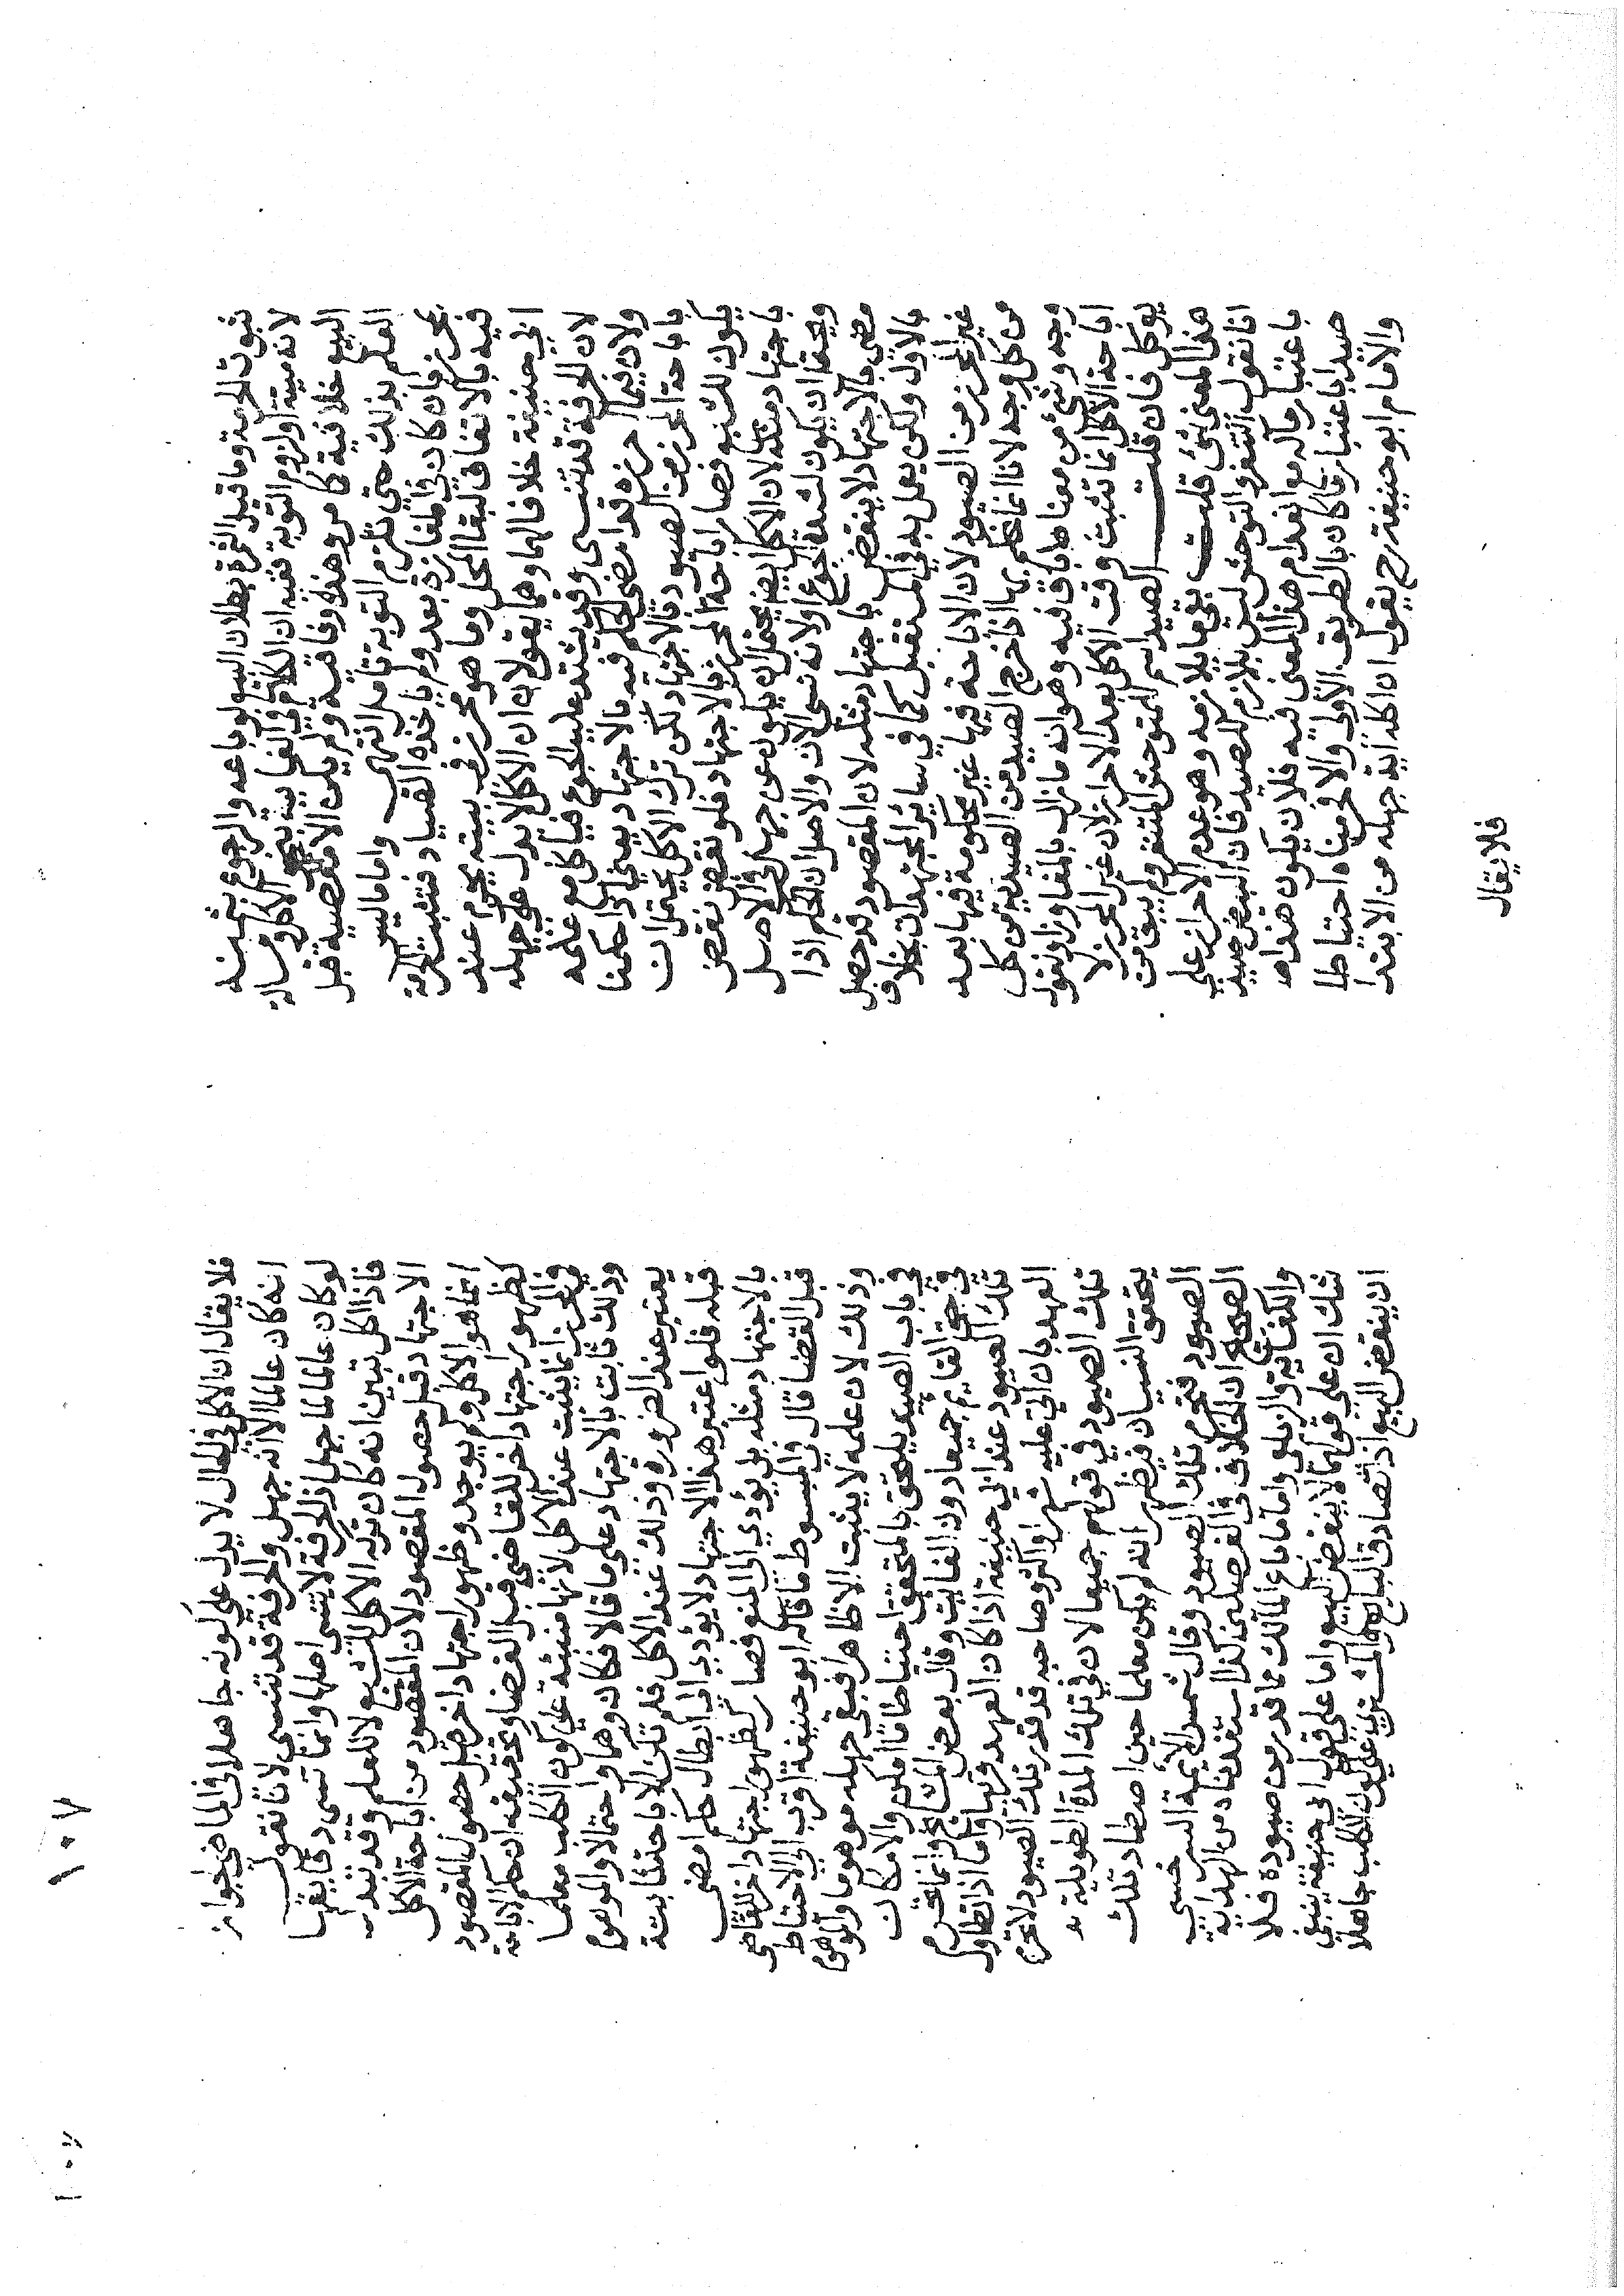 ثبوت الحرمة وما قيل الثمرة بطلان البيع لو باعه والرجوع بثمنه
لانه ميتة او لزوم التوبة ففيه ان الكلام في الغايب بعد الاكل ومسالة
البيع خلافية كما مر وهذه وفاقية ولم يكن الا معصية قبل
العلم بذلك حتى تلزم التوبة تأمل انتهى واما ما ليس
بمحرز فان كان في المفازة بعد ولم ياخذه الصياد فتثبت الحرمة
فيه بالاتفاق لبقا المحل وما هو محرز في بيته يحرم عند
ابي حنيفة خلافا لهما وهما يقولان ان الاكل لا يدل على جهله
لان الحرفة قد تنسى وقد يشتد عليه الجوع فياكل مع علمه
ولان فيما احرزه قد امضى الحكم فيه بالاجتهاد يعني اذا حكمنا
باباحة المحرز من الصيود بالاجتهاد لكن ترك الاكل يحتمل ان
يكون للشبع فصار اباحة المحرز بالاجتهاد فلو نقض نقض
باجتهاد مثله لان الاكل ايضا يحتمل ان يكون عن جهل في الاصل
ويحتمل ان يكون لشدة الجوع او لانه نسي الان والاصل ان الحكم اذا
مضى بالاجتهاد لا ينقض باجتهاد مثله لان المقصود قد حصل
بالاول ولكن يعمل به في المستقبل كما في سائر المجتهدات بخلاف
غير المحرز من الصيود لان الاباحة فيها غير محكومة فيها بعد
من كل وجه لانا انما نحكم بها اذا خرج الصيد من الصيدية من كل
وجه وشئ من معناها باق فيه وهو انه ما زال بالمفاوز او نقول
اباحة الاكل انما تثبت وقت الاكل بعد الاحراز لان غير المحرز لا
يوكل فان قلت الصيد اسم لمتوحش المتنفر ولم يبق من
هذا المعنى شئ قلت بقي ما يلازمه وهو عدم الاحراز على
انا نقول التنفر والتوحش ليس بلازم للصيد فان البيض صيد
باعتبار مآله مع انعدام هذا المعنى فيه فلان يكون هذا
صيدا باعتبار ما كان بالطريق الاولى والا حرمناه احتياطا
والامام ابو حنيفة رح يقول ان اكله اية جهله من الابتدا
فلا يقال
١٠٧
فلا يقال ان الاكل في الحال لا يدل على كونه جاهلا في الماضي لجواز
انه كان عالما الا انه جهل والحرفة قد تنسى لانا نقول
لو كان عالما لما جهل اذ الحرفة لا ينسى اصلها وانما تنسى دقايقها
فاذا اكل تبين انه كان تركه الاكل للشبع لا للعلم وقد تبدل
الاجتهاد قبل حصول المقصود لان المقصود من اباحة الاكل
انما هو الاكل ولم يوجد وظهور اجتهاد اخر قبل حصول المقصود
كظهور اجتهاد اخر للقاضي قبل القضا وتحقيقه ان حكم الاباحة
في المحرز انما يثبت عند الاكل لانها مبنية على كون الكلب معلما
وذلك ثابت بالاجتهاد على ما قالا فكان وهما واحتمالا والموهوم
يعتبر عند الضرورة وذلك عند الاكل فلم تكن الاباحة ثابتة
قبله فلو اعتبر هذا الاجتهاد لا يؤدي الى ابطال حكم امضى
بالاجتهاد مثله بل يؤدي الى المنع فصار كظهور اجتهاد اخر للقاضي
قبل القضا قال في المبسوط ما قاله ابو حنيفة اقرب الى الاحتياط
وذلك لان علمه لا يثبت الا ظاهرا فبقي جهله موهوما والموهوم
في باب الصيد يلحق بالمتحقق احتياطا ما امكن والامكان
في حق القايم جميعا دون الفايت وقال بعض المشايخ وانما تحرم
تلك الصيود عند ابي حنيفة اذا كان العهد قريبا واما اذا تطاول
العهد بان اتى عليه شهر او اكثر وصاحبه قد قدد تلك الصيود لا تحرم
تلك الصيود في قولهم جميعا لان في تلك المدة الطويلة
يتحقق النسيان فيظهر انه لم يكن معلما حين اصطاد تلك
الصيود فتحرم تلك الصيود وقال شمس الائمة السرخسي
الصحيح ان الخلاف في الفصلين كذا استفدنا من الهداية
والكفاية والزيلعي واما ما باع المالك مما قدد من صيوده فلا
شك ان على قولهما لا ينقض البيع واما على قول ابي حنيفة ينبغي
ان ينقض البيع اذ تصادق البايع والمشتري على كون الكلب جاهلا